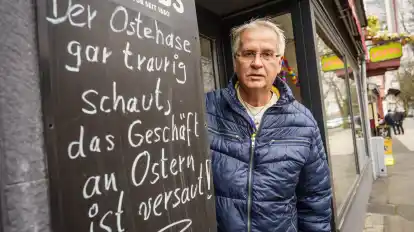 SEIT 1880
Der Osterhase
gar traurig
schaut,
das Geschäft
an Ostern
ist versaut!